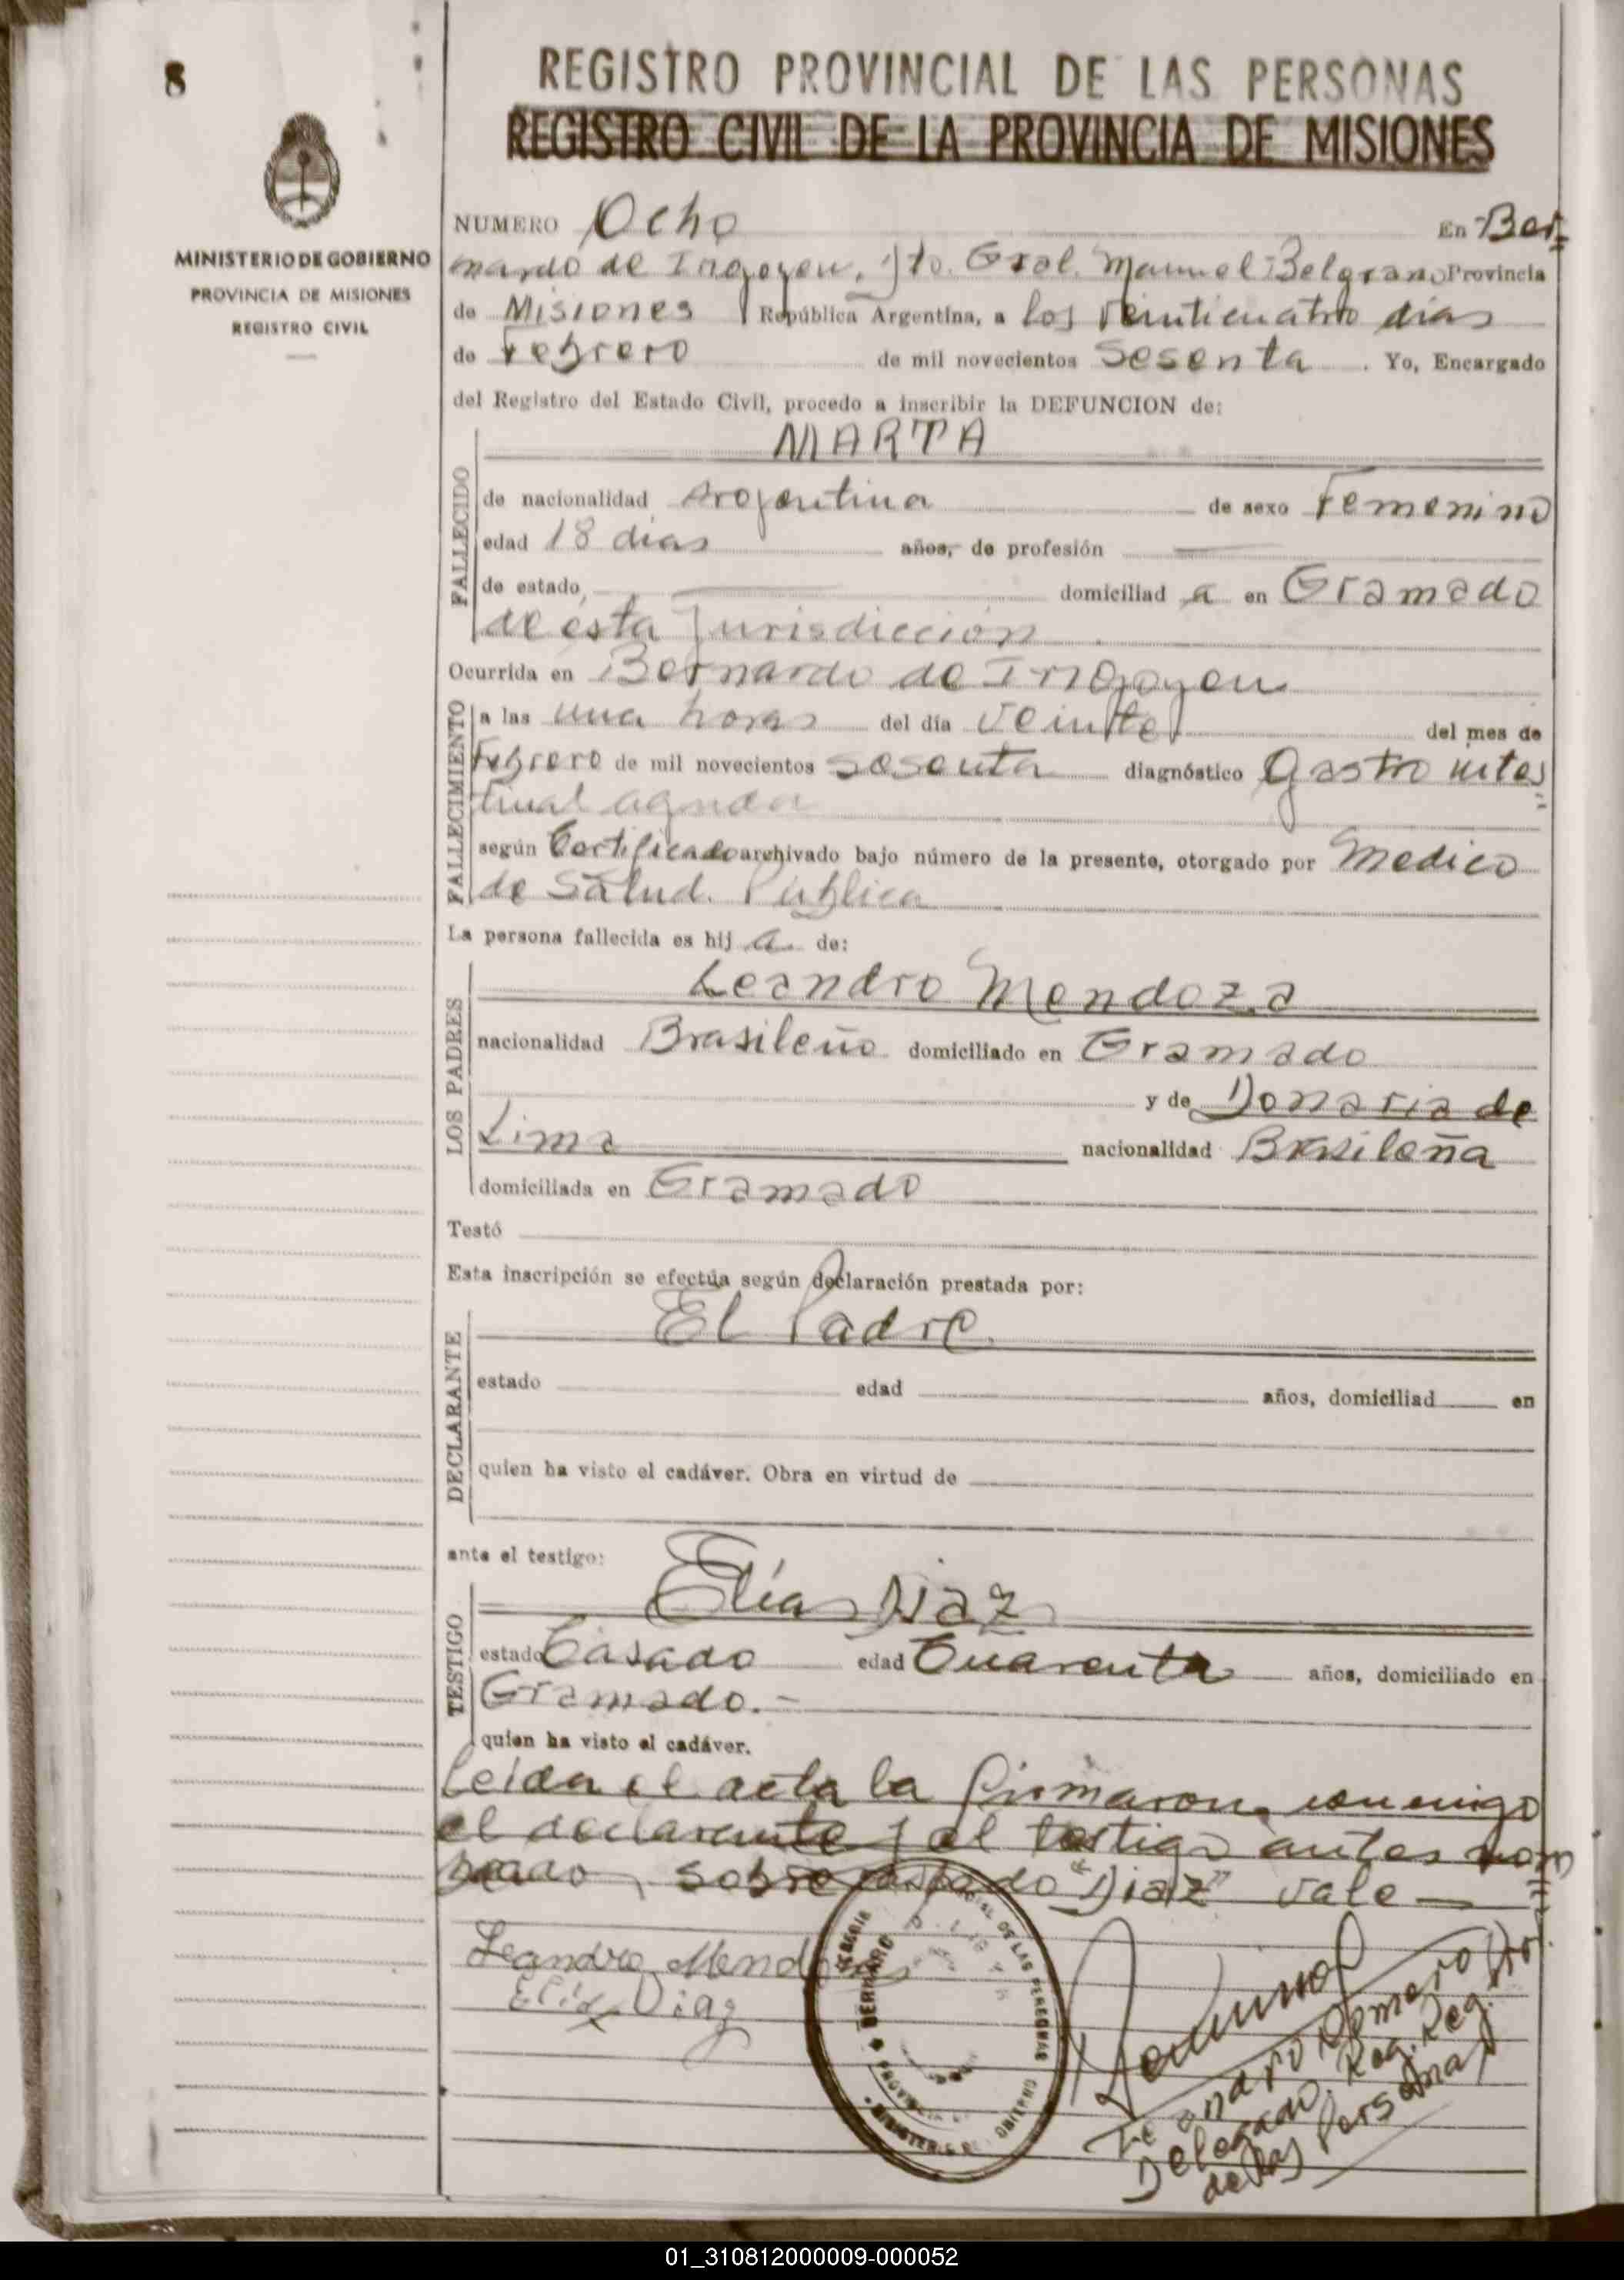 8
REGISTRO PROVINCIAL DE LAS PERSONAS
REGISTRO CIVIL DE LA PROVINCIA DE MISIONES
MINISTERIO DE GOBIERNO
PROVINCIA DE MISIONES
REGISTRO CIVIL
NUMERO Ocho En Ber=
nardo de Irigoyen, Dto. Gral. Manuel Belgrano Provincia
de Misiones República Argentina, a los veinticuatro días
de Febrero de mil novecientos sesenta. Yo, Encargado
del Registro del Estado Civil, procedo a inscribir la DEFUNCION de:
MARTA
FALLECIDO
de nacionalidad Argentina de sexo Femenino
edad 18 días años, de profesión —
de estado, — domiciliad a en Gramado
de esta Jurisdicción
Ocurrida en Bernardo de Irigoyen
FALLECIMIENTO
a las una horas del día veinte del mes de
Febrero de mil novecientos sesenta diagnóstico Gastro intes=
tinal aguda
según Certificado archivado bajo número de la presente, otorgado por Medico
de Salud. Publica
La persona fallecida es hij a de:
LOS PADRES
Leandro Mendoza
nacionalidad Brasileño domiciliado en Gramado
y de Donaria de
Lima nacionalidad Brasileña
domiciliada en Gramado
Testó
Esta inscripción se efectúa según declaración prestada por:
DECLARANTE
El Padre
estado edad años, domiciliad en
quien ha visto el cadáver. Obra en virtud de
ante el testigo:
TESTIGO
Elías Diaz
estado Casado edad Cuarenta años, domiciliado en
Gramado.-
quien ha visto el cadáver.
Leida el acta la firmaron conmigo
el declarante y el testigo antes nom=
brado, sobre raspado "Diaz" vale —
Leandro Mendoza
Elias Diaz
Leandro Romero
Delegado Reg.
de las Personas
01_310812000009-000052